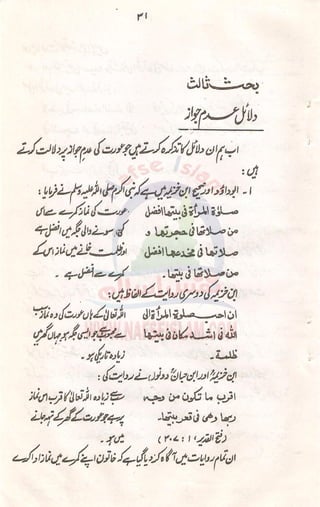 ۳۱
بحث ثالث
دلائل عدم جواز
اب ہم ان دلائل کا تذکرہ کرتے ہیں جو عورت کی عدم جواز پر دلالت کرتے
ہیں:
۱۔ ابوداؤد اور صحیح ابن خزیمہ میں ہے کہ نبی اکرم صلی اللہ علیہ وسلم نے فرمایا:
صلوٰة المرأة فی بیتها افضل عورت کی نماز کمرے سے اس
من صلاتها فی حجرتها و کی سونے والی جگہ میں افضل ہے
صلاتها فی مخدعها افضل اور خلوت خانے میں نماز اس کے
من صلاتها فی بیتها۔ کمرے سے افضل ہے۔
ابن خزیمہ کی دوسری روایت کے الفاظ ہیں:
ان احب صلوة المرأة الی اللہ تعالیٰ کے ہاں عورت کی وہ نماز سب
الله فی اشد مکان فی بیتها سے محبوب ہے جو ایسی جگہ ہو جہاں گھر میں
ظلمة۔ زیادہ تاریکی ہو۔
ابن خزیمہ اور ابن حبان دونوں نے روایت کی:
اقرب ما تکون من وجه سے زیادہ اللہ تعالیٰ کا قرب اس نماز
ربها وهی فی قعر بیتها۔ پر ہے جو عورت کے گھر کے تہہ خانے
(فتح القدیر ۱: ۳۰۷) میں ہو۔
ان تمام روایات میں آگاہ کر دیا گیا ہے کہ خاتون اپنے کمرے میں نماز ادا کرے